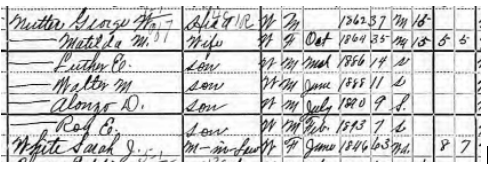 Nutter George W. Head W M 1862 37 M 15
— Matilda M. Wife W F Oct 1864 35 M 15 5 5
— Luther E. son W M Mar 1886 14 S
— Walter M son W M June 1888 11 S
— Alonzo D. son W M July 1890 9 S.
— Roy E. son W M Feb. 1893 7 S
White Sarah J. M-in-Law W F June 1846 63 Wd. 8 7